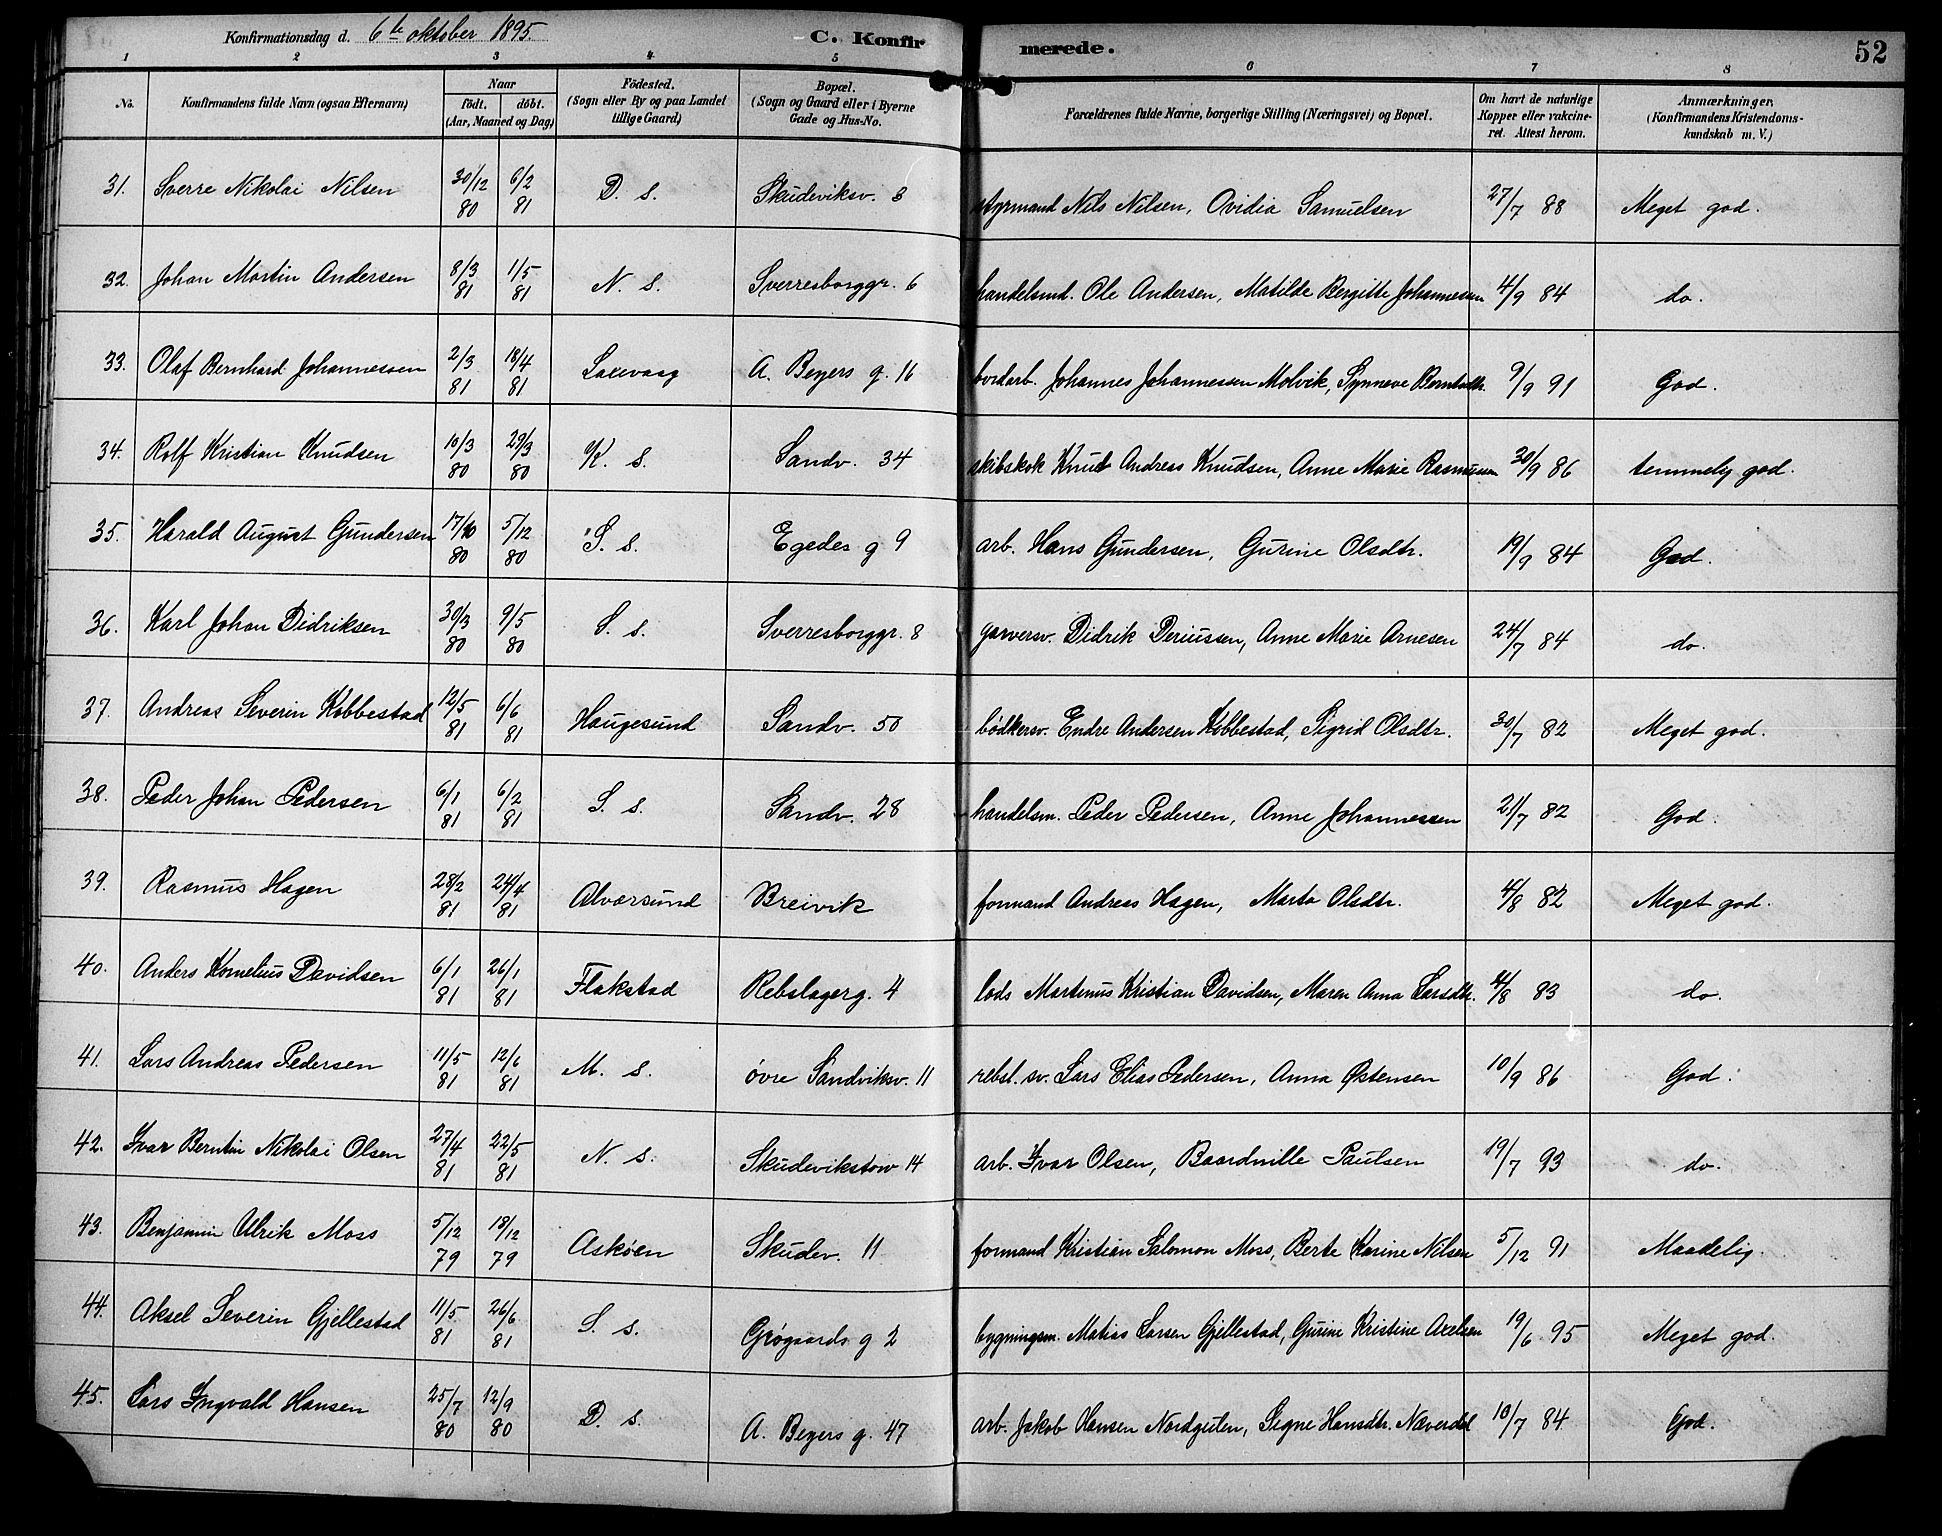 Konfirmationsdag d. 6te oktober 1895. C. Konfirmerede. 52
1 2 3 4 5 6 7 8
No. Konfirmandens fulde Navn (ogsaa Efternavn) Naar födt. döbt. (Aar, Maaned og Dag) Födested. (Sogn eller By og paa Landet tillige Gaard) Bopæl. (Sogn og Gaard eller i Byerne Gade og Hus-No. Forældrenes fulde Navne, borgerlige Stilling (Næringsvei) og Bopæl. Om havt de naturlige Kopper eller vakcineret. Attest herom. Anmærkninger. (Konfirmandens Kristendomskundskab m. V.)
31. Sverre Nikolai Nilsen 30/12 80 6/2 81 D. s. Skudeviksv. 3 styrmand Nils Nilsen, Ovidia Samuelsen 27/7 88 Meget god.
32. Johan Martin Andersen 8/3 81 1/5 81 N. s. Sverresborggr. 6 handelsmd. Ole Andersen, Matilde Bergitte Johannesen 4/9 84 do.
33. Olaf Bernhard Johannessen 2/3 81 18/4 81 Laxevaag A. Beyers g. 16 bordarb. Johannes Johannessen Molvik, Synneve Berntsdtr. 9/9 91 God.
34. Rolf Kristian Knudsen 10/3 80 29/3 80 K. s. Sandv. 34 skibskok Knut Andreas Knudsen, Anne Marie Rasmussen 30/9 86 temmelig god.
35. Harald August Gundersen 17/10 80 5/12 80 S. s. Egedes g 9 arb. Hans Gundersen, Gurine Olsdtr. 19/9 84 God.
36. Karl Johan Didriksen 30/3 80 9/5 80 S. s. Sverresborggr. 8 garversv. Didrik Deriussen, Anne Marie Arnesen 24/7 84 do.
37. Andreas Severin Købbestad 12/5 81 6/6 81 Haugesund Sandv. 50 bödkersv. Endre Andersen Købbestad, Sigrid Olsdtr. 30/7 82 Meget god.
38. Peder Johan Pedersen 6/1 81 6/2 81 S. s. Sandv. 28 handelsm. Peder Pedersen, Anne Johannessen 21/7 82 God.
39. Rasmus Hagen 28/2 81 24/4 81 Alversund Breivik formand Andreas Hagen, Marta Olsdtr. 4/8 82 Meget god.
40. Anders Kornelius Davidsen 6/1 81 26/1 81 Flakstad Rebslagerg. 4 lods Martinus Kristian Davidsen, Maren Anna Larsdtr. 4/8 83 do.
41. Lars Andreas Pedersen 11/5 81 12/6 81 M. s. övre Sandviksv. 11 rebsl. sv. Lars Elias Pedersen, Anna Østensen 10/9 86 God.
42. Ivar Berntin Nikolai Olsen 27/4 81 22/5 81 N. s. Skudevikstorv 14 arb. Ivar Olsen, Baardnille Paulsen 19/7 93 do.
43. Benjamin Ulrik Moss 5/12 79 18/12 79 Askøen Skudev. 11 formand Kristian Salomon Moss, Berte Karine Nilsen 5/12 91 Maadelig.
44. Aksel Severin Gjellestad 11/5 81 26/6 81 S. s. Grøgaards g 2 bygningsm. Matias Larsen Gjellestad, Gurine Kristine Axelsen 19/6 95 Meget god.
45. Lars Ingvald Hansen 25/7 80 12/9 80 D. s. A. Beyers g. 47 arb. Jakob Hansen Nordguten, Signe Hansdtr. Næverdal 10/7 84 God.